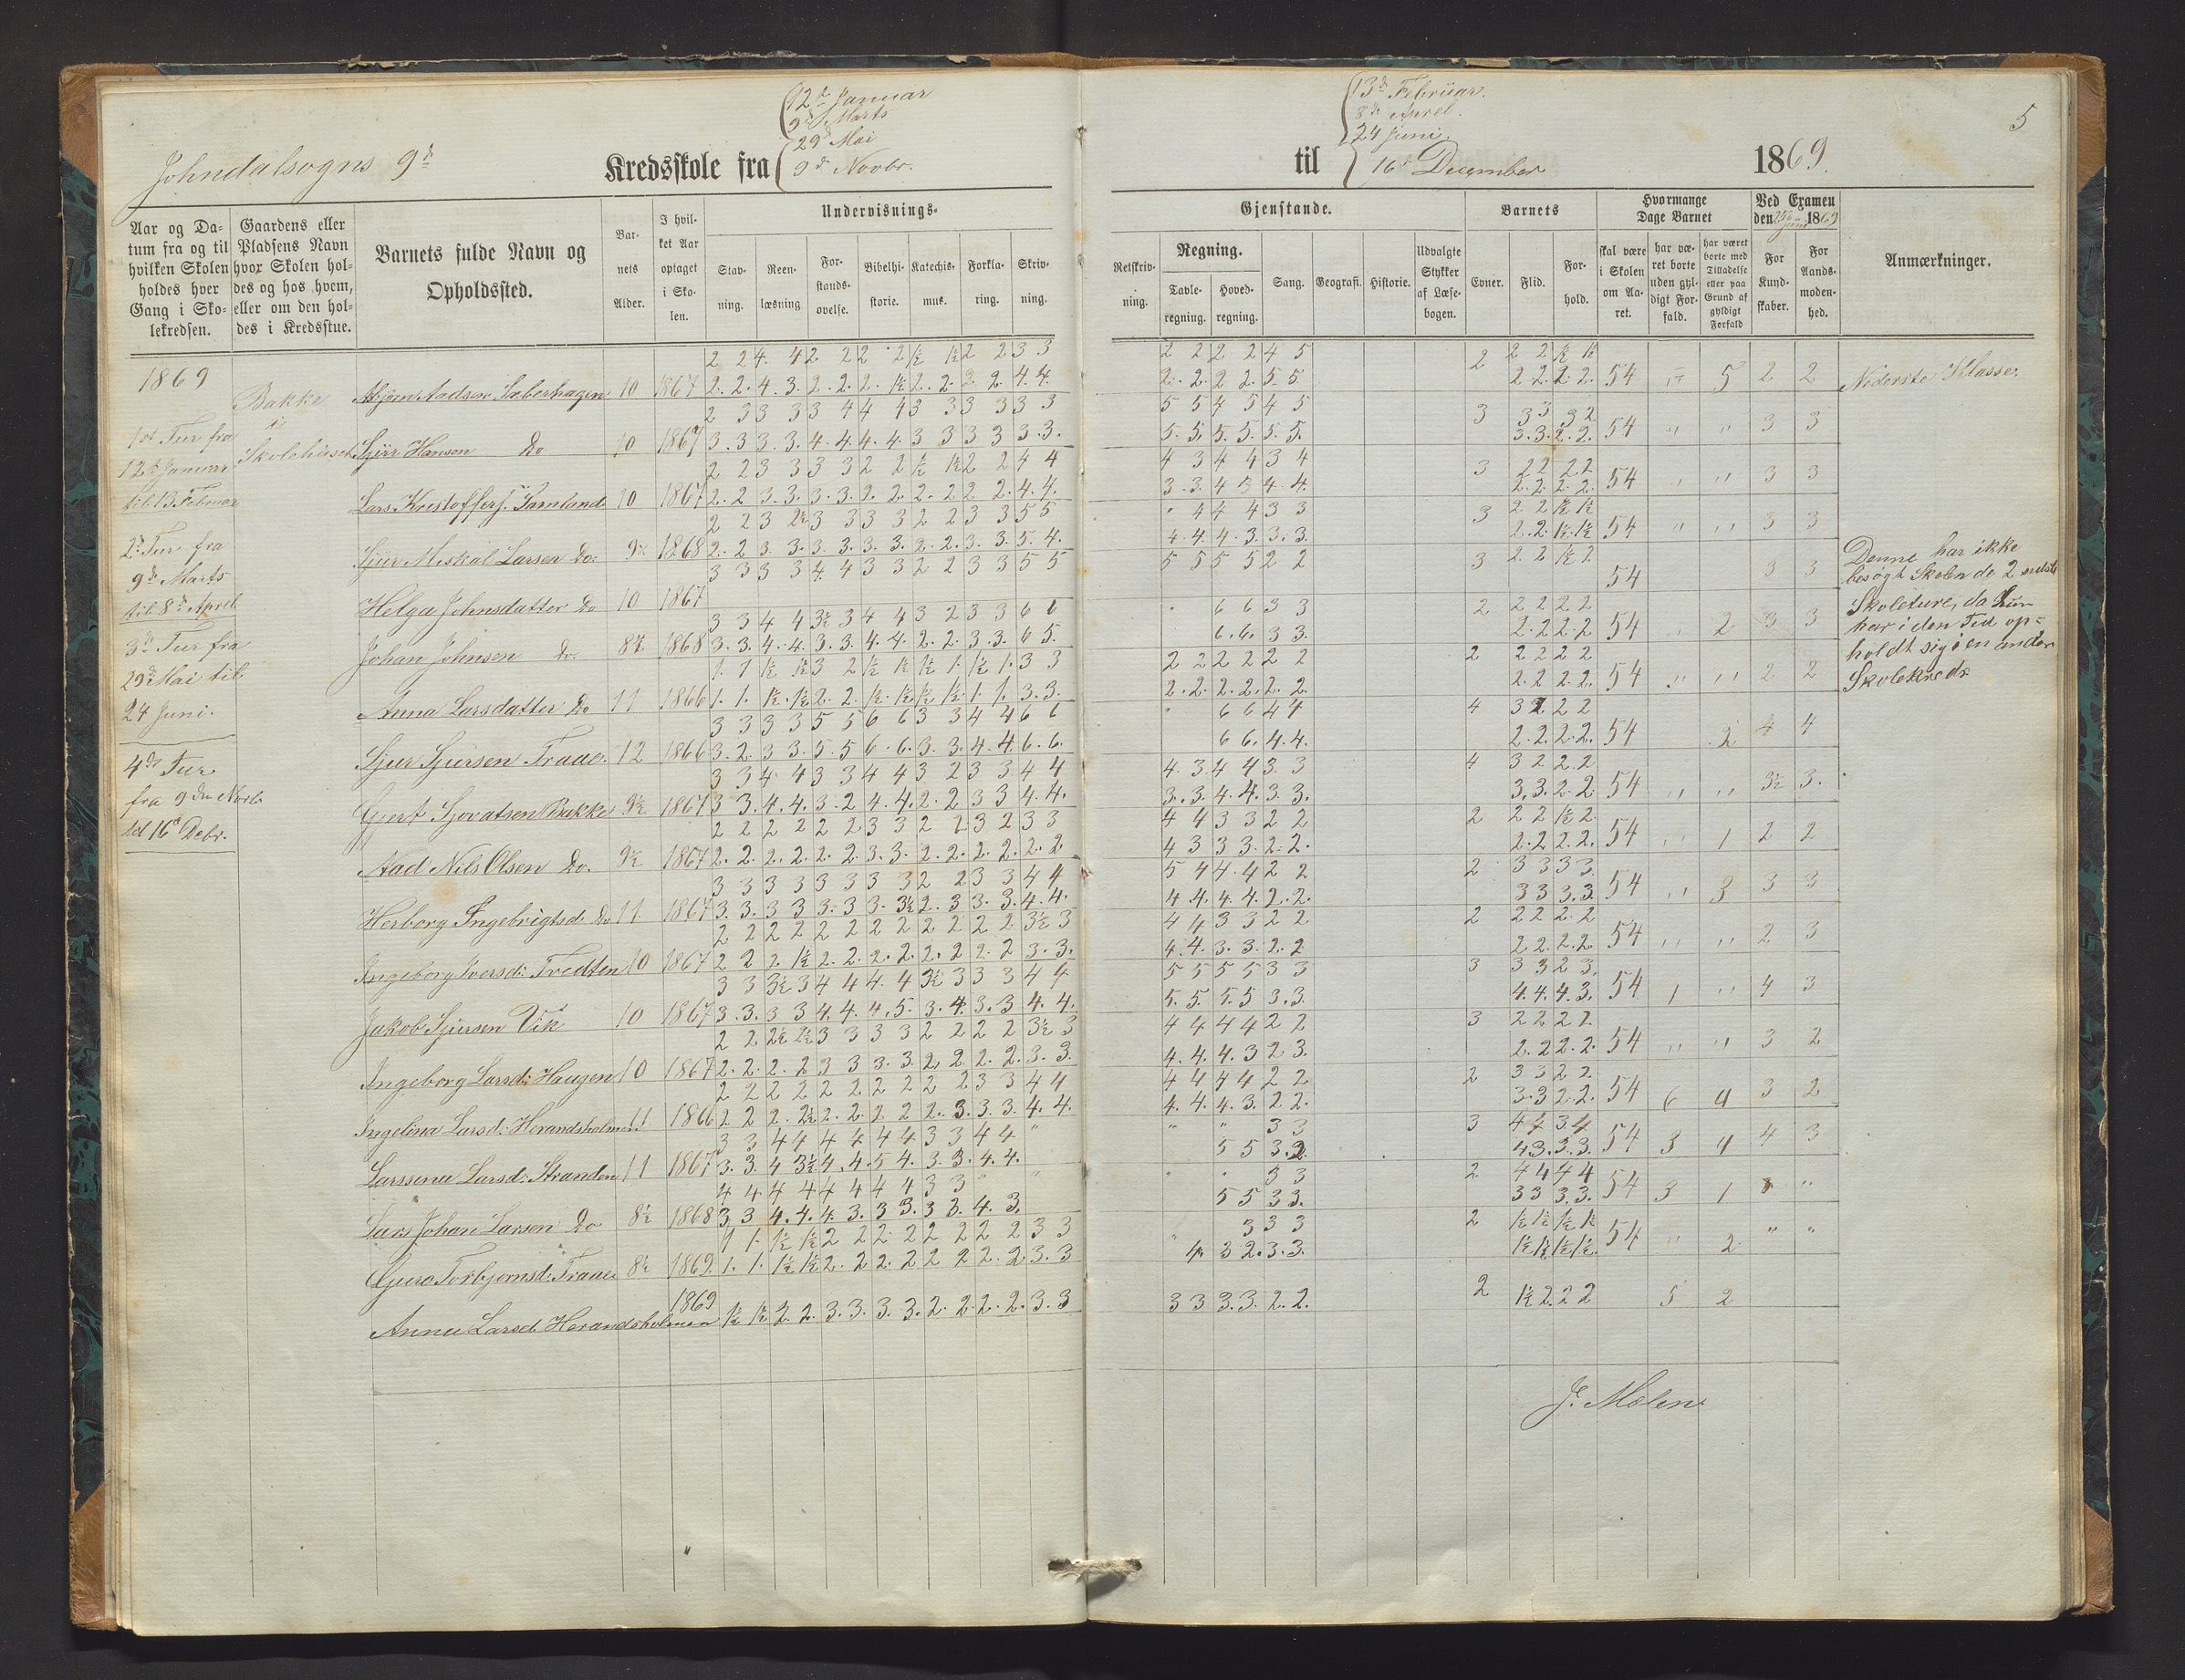 12te Januar
9de Marts
29de Mai
9de Novbr.
Johndalsogns 9de Kredsskole fra
13de Februar.
8de Aprel.
24 Juni.
16de December
til 1869.
5
Aar og Datum fra og til hvilken Skolen holdes hver Gang i Skolekredsen.
Gaardens eller Pladsens Navn hvor Skolen holdes og hos hvem, eller om den holdes i Kredsstue.
Barnets fulde Navn og Opholdssted.
Barnets Alder.
I hvilket Aar optaget i Skolen.
Undervisnings-
Stavning.
Reenlæsning
Forstandsøvelse.
Bibelhistorie.
Katechismus.
Forklaring.
Skrivning.
Gjenstande.
Retskrivning.
Regning.
Tavleregning.
Hovedregning.
Sang.
Geografi.
Historie.
Udvalgte Stykker af Læsebogen.
Barnets
Evner.
Flid.
Forhold.
Hvormange Dage Barnet
skal være i Skolen om Aaret.
har været borte uden gyldigt Forfald.
har været borte med Tilladelse eller paa Grund af gyldigt Forfald
Ved Examen den Juni 1869
For Kundskaber.
For Aandsmodenhed.
Anmærkninger.
1869
1st Tur fra
12te Januar
til 13 Februar
2den Tur fra
9de Marts
til 8de Aprel
3de Tur fra
29de Mai til
24 Juni.
4de Tur
fra 9de Novb.
til 16de Debr.
Bakke
Skolehuset
2 2 4. 4 2 2 2 2 1½ 1½ 2 2 3 3 2 2 2 2 4 5 2 2 2 1½ 1½
Aadsen 10 1867 2. 2. 4. 3. 2. 2. 2. 1½ 2. 2. 2 2. 4. 4. 2. 2. 2 2. 5. 5. 2 2. 2. 2. 54 " 5 2 2 Nederste Klasse.
2 3 3 3 3 4 4 4 3 3 3 3 3 3 5 5 4 5 4 5 3 3 3 3 2
Hansen Do 10 1867 3. 3 3. 3. 4. 4. 4. 4. 3 3 3 3 3. 3. 5. 5. 5. 5. 5. 5. 3. 3. 2. 2. 54 " " 3 3
2 2 3 3 3 3 2 2 1½ 1½ 2 2 4 4 4 3 4 4 3 4 3 2 2 2 2
Lars Kristoffers. Samland 10 1867 2. 2 3. 3. 3. 3. 2. 2. 2. 2 2 2. 4. 4. 3. 3. 4 3 4. 4. 2. 2. 2. 2. 54 " " 3 3
2 2 3 2½ 3 3 3 3 2 2 3 3 5 5 " 4 4 4 3 3 3 2 2 1½ 1½
Sjur Mikal Larsen Do. 9½ 1868 2. 2 3. 3. 3. 3. 3. 3. 2. 2. 3. 3. 5. 4. 4. 4. 4. 3. 3. 3. 2. 2. 1½. 1½ 54 " " 3 3
3 3 3 3 4. 4 3 3 2 2 3 3 5 5 5 5 5 5 2 2 3 2 2 1½ 2
Helga Johnsdatter Do 10 1867 54 3 3 Denne har ikke
besøgt Skolen de 2 sidste
Skoleture, da hun
har i den Tid op=
holdt sig i en anden
Skolekreds.
3 3 4 4 3½ 3 4 4 3 2 3 3 6 6 " 6 6 3 3 2 2 2 2 2
Johan Johnsen Do. 8½ 1868 3. 3. 4. 4. 3. 3. 4. 4. 2. 2. 3. 3. 6 5. 6. 6. 3 3. 2. 2. 2. 2 54 " 2 3 3
1. 1 1½ 1½ 3 2 1½ 1½ 1½ 1. 1½ 1. 3 3 2 2 2 2 2 2 2 2 2 2 2
Anna Larsdatter Do 11 1866 1. 1. 1½. 1½ 2. 2. 1½. 1½. 1½ 1½ 1. 1. 3. 3. 2. 2. 2. 2. 2. 2. 2. 2 2. 2. 54 " " 2 2
3 3 3 3 5 5 6 6 3 3 4 4 6 6 " 6 6 4 4 4 3 2 2 2
Sjur Sjursen Traae. 12 1866 3. 2. 3 3. 5. 5 6. 6. 3. 3. 4. 4. 6. 6. 6 6. 4. 4. 2. 2. 2. 2. 54 2 4 4
3 3 4 4 3 3 4 4 3 2 3 3 4 4 4. 3. 4 4 3. 3 4 3 2 2. 2
Gjert Sjovatsen Bakke 9½ 1867 3 3. 4. 4. 3. 2 4. 4. 2. 2 3 3 4. 4. 3. 3. 4. 4. 3. 3. 3. 3. 2 2. 54 " " 3½ 3.
2 2 2 2 2 2 3 3 2 2 3 2 3 3 4 4 3 3 2 2 2 2 2 1½ 2
Aad Nils Olsen Do. 9½ 1867 2. 2. 2. 2. 2. 2 3. 3. 2. 2. 2. 2. 2. 2 4 3 3 3. 2. 2. 2. 2. 2. 2. 54 " 1 2 2
3 3 3 3 3 3 3 3 2 2 3 3 4 4 5 4 4. 4 2 2 2 3 3 3 3.
Herborg Ingebrigtsd. Do 11 1867 3. 3. 3 3 3. 3 3. 3½ 2. 3 3. 3. 4. 4. 4. 4. 4. 4. 2. 2. 3 3 3. 3. 54 " 3 3 3
2 2 2 2 2 2 2 2 2 2 2 2 3½ 3 4 4 3 3 2 2 2 2 2 2 2
Ingeborg Iversd: Tvedten 10 1867 2 2 2. 1½ 2. 2. 2. 2. 2. 2 2. 2 3. 3. 4. 4. 3. 3. 2. 2 2. 2. 2. 2 54 " " 2 3
3 3 3½ 3 4 4 4. 4 3½ 3 3 3 4 4 5 5 5 5 3 3 3 3 3 2 3.
Jakob Sjursen Vik 10 1867 3. 3. 3 3 4. 4. 4. 5. 3. 4. 3. 3 4. 4. 5. 5. 5. 5 3. 3. 4. 4. 4. 3. 54 1 " 4 3
2 2 2½ 2½ 3 3 3 3 2 2 2 2 3½ 3 4 4 4 4 2 2 3 2 2 2 2
Ingeborg Larsd: Haugen 10 1867 2. 2. 2. 2 3 3 3. 3. 2. 2 2. 2. 3. 3. 4. 4. 4. 3 2 3. 2. 2 2. 2. 54 " " 3 2
2 2 2 2 2 2 2 2 2 2 3 3 4 4 4 4 4 4 2 2 2 3 3 2 2
Ingelina Larsd: Herandsholmen 11 1866 2 2 2. 2½ 2. 2. 2 2 2. 3. 3. 3. 4. 4. 4. 4. 4. 3. 2 2. 3. 3 2. 2. 54 6 4 3 2
3 3 4 4 4 4 4 4 3 3 4 4 " " " 3 3 3 4 4 3 4
Larssena Larsd: Stranden 11 1867 3. 3. 4 3½ 4. 4. 5 4. 3. 3. 4. 4. 5 5 3. 2 4 3. 3. 3. 54 3 4 4 3
4 4 4 4 4 4 4 4 3 3 " " " " 3 3 2 4 4 4 4
Lars Johan Larsen Do 8½ 1868 3. 3 4. 4. 4. 3. 3 3. 3 3. 4. 3. 5 5 3 3. 3 3 3. 3. 54 3 1 "
1 1. 1½ 1½ 2 2 2 2 2 2 2 2 3 3 " 3 3 3 2 1½ 1½ 1½ 1½
Guro Torbjørnsd: Traae 8½ 1869. 1. 1. 1½ 1½ 2. 2 2. 2 2 2 2. 2 3. 3 4. 3 2. 3. 3. 1½ 1½ 1½ 1½. 54 " 2 " "
Anna Larsd. Herandsholmen 1869 1½ 1½ 2. 2. 3. 3. 3. 3. 2. 2. 2. 2. 3. 3 3 3 3. 3. 2. 2. 2 1½ 2. 2 2 5 2
J. Mælen